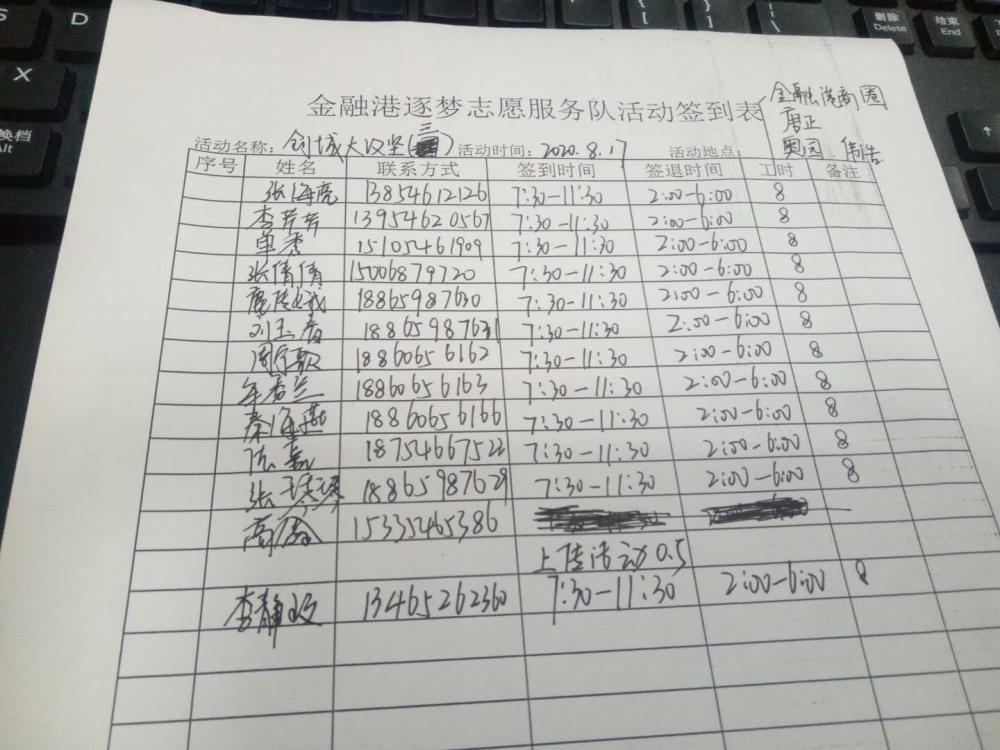 金融港逐梦志愿服务队活动签到表
金融港商圈
唐正
奥园
活动名称: 创城大攻坚(三) 活动时间: 2020.8.17 活动地点:
序号 姓名 联系方式 签到时间 签退时间 工时 备注
张海亮 13854612126 7:30-11:30 2:00-6:00 8
李芳芳 13954620567 7:30-11:30 2:00-6:00 8
单秀 15105461909 7:30-11:30 2:00-6:00 8
张倩倩 15006879720 7:30-11:30 2:00-6:00 8
18865987630 7:30-11:30 2:00-6:00 8
刘玉 18865987631 7:30-11:30 2:00-6:00 8
周 18860656162 7:30-11:30 2:00-6:00 8
18860656163 7:30-11:30 2:00-6:00 8
秦海燕 18860656166 7:30-11:30 2:00-6:00 8
18754667522 7:30-11:30 2:00-6:00 8
张琴琴 18865987629 7:30-11:30 2:00-6:00 8
高 15335465386
上传活动0.5
李静 13465262360 7:30-11:30 2:00-6:00 8
X
S
D
换档
Alt
删除
Delete
结束
End